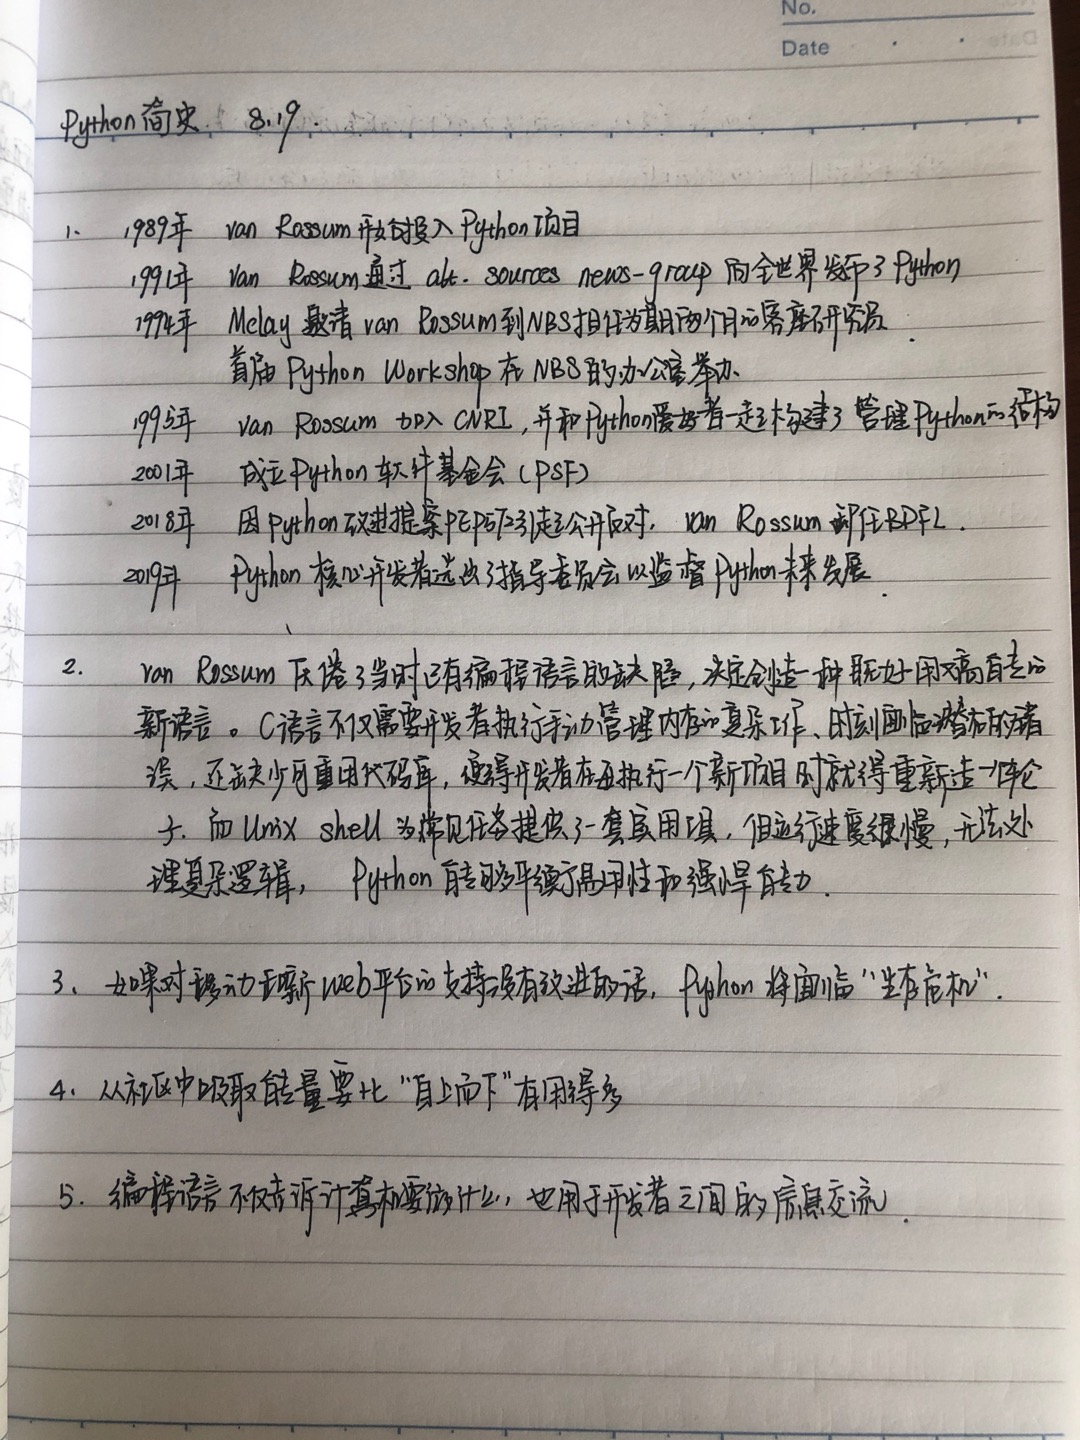 No.
Date
Python简史 8.19.
1. 1989年 van Rossum开始投入Python项目
1991年 van Rossum通过 alt. sources news-group 向全世界发布了Python
1994年 Mclay 邀请 van Rossum到NBS担任为期两个月的客座研究员.
首届 Python Workshop 在 NBS的办公室举办.
1995年 van Rossum 加入 CNRI, 并和Python爱好者一起构建了 管理Python的结构
2001年 成立Python软件基金会(PSF)
2018年 因Python改进提案PEP572引起公开反对, van Rossum 卸任BDFL.
2019年 Python 核心开发者选出了指导委员会以监督Python未来发展.
2. van Rossum 厌倦了当时已有编程语言的缺陷, 决定创造一种既好用又高能的
新语言。C语言不仅需要开发者执行手动管理内存的复杂工作、时刻面临潜在的错
误, 还缺少可重用代码库, 使得开发者在每执行一个新项目时就得重新造一件轮
子. 而 Unix shell 为常见任务提供了一套实用工具, 但运行速度很慢, 无法处
理复杂逻辑, Python 能够平衡了易用性和强悍能力.
3. 如果对移动互联新web平台的支持没有改进的话, Python 将面临“生存危机”.
4. 从社区中吸取能量要比“自上而下”有用得多
5. 编程语言不仅告诉计算机要做什么, 也用于开发者之间的信息交流.